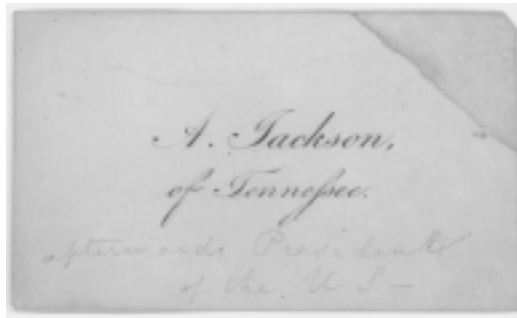 A. Jackson,
of Tenneſsee.
afterwards President
of the U S —